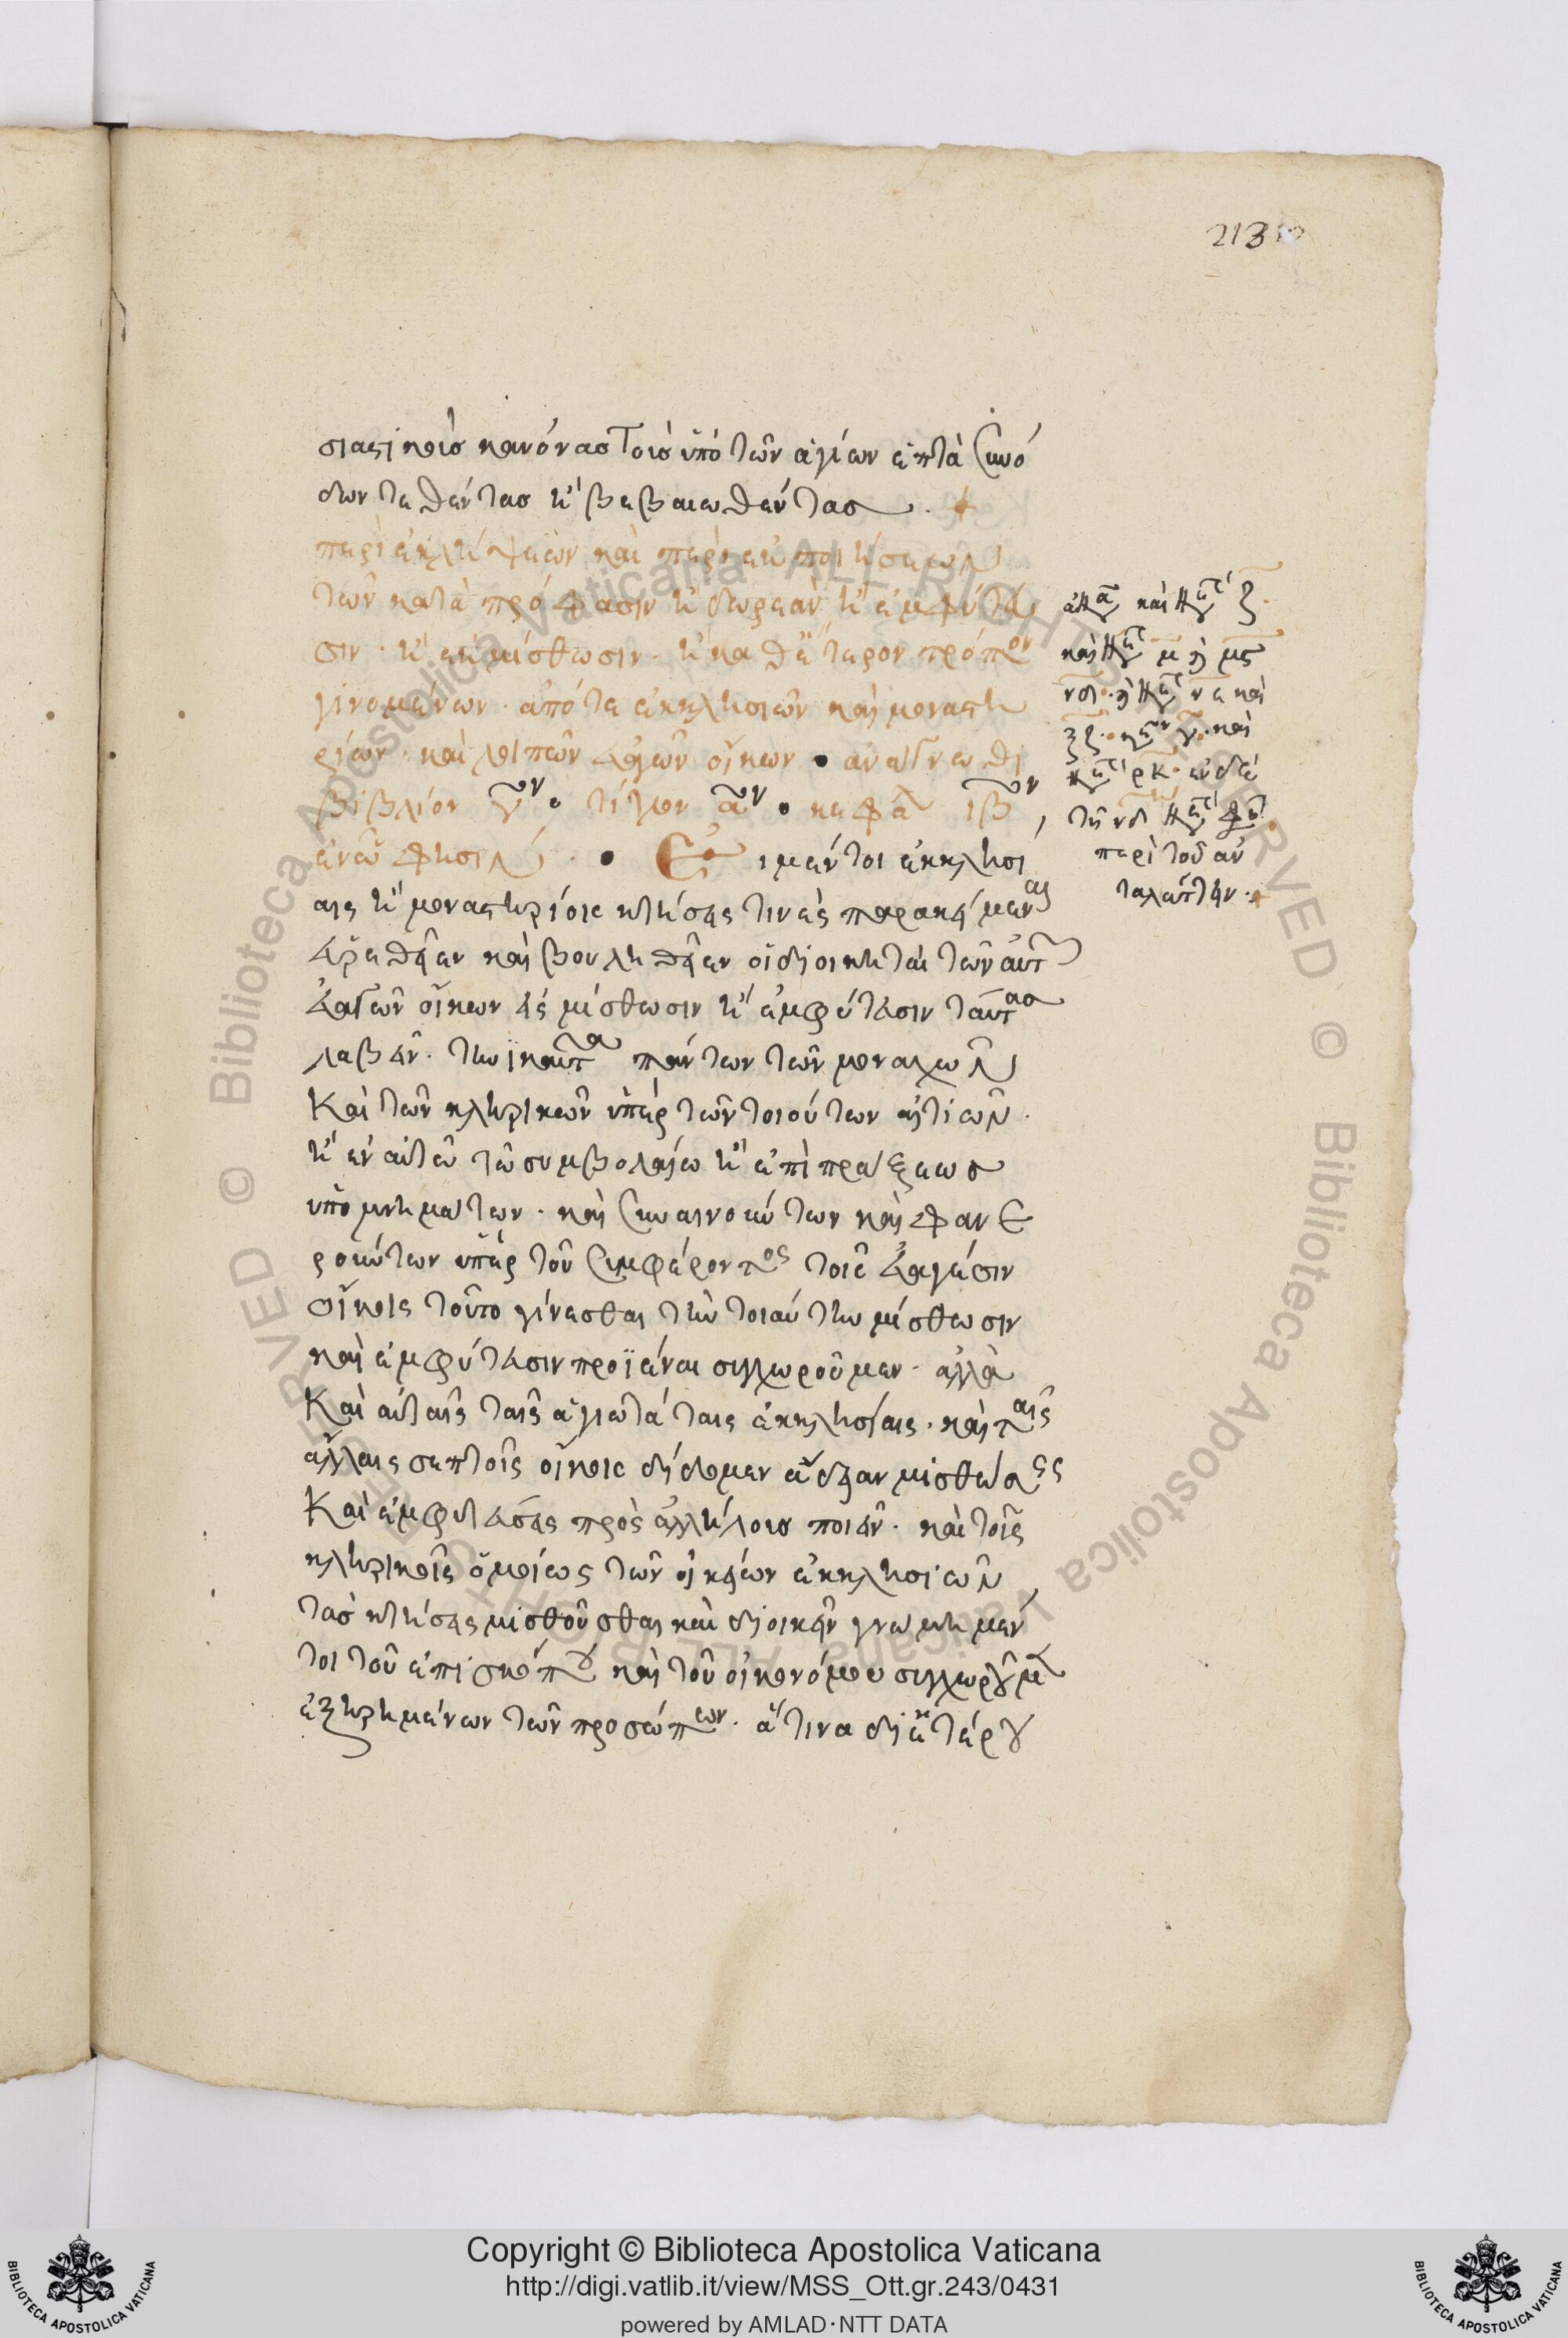 213
σιαστικοὺς κανόνας τοὺς ὑπὸ τῶν ἁγίων ἑπτὰ συνό
δων τεθέντας κ βεβαιωθέντας
περὶ ἐκλήψεων καὶ περὶ ἐκποιήσεων
τῶν κατὰ πρόφασιν κ δωρεὰν κ ἐμφύτευ
σιν · κ ἐκμίσθωσιν · κ καθ ἕτερον τρόπον
γινομένων · ἀπό τε ἐκκλησιῶν καὶ μοναστη
ρίων · καὶ λοιπῶν εὐαγῶν οἴκων · ἀνάγνωθι
βιβλίον γον · τίτλον αον · κεφα ιβον
ἐν ᾧ φησιν · Εἰ
μέντοι ἐκκλησί
αις κ μοναστηρίοις κτήσεις τινὲς παρακείμεναι
εὑρεθεῖεν καὶ βουληθεῖεν οἱ διοικηταὶ τῶν αὐτ
εὐαγῶν οἴκων εἰς μίσθωσιν κ ἐμφύτευσιν ταύτας
λαβεῖν · τηνικαῦτα πάντων τῶν μοναχῶν
Καὶ τῶν κληρικῶν ὑπὲρ τῶν τοιούτων αἰτιῶν ·
κ ἐν αὐτῷ τῷ συμβολαίῳ κ ἐπὶ πράξεως
ὑπομνημάτων · καὶ συναινούντων καὶ φανε
ρούντων ὑπὲρ τοῦ συμφέροντος τοῖς εὐαγέσιν
οἴκοις τοῦτο γίνεσθαι τὴν τοιαύτην μίσθωσιν
καὶ ἐμφύτευσιν προϊέναι συγχωροῦμεν · ἀλλὰ
Καὶ αὐταῖς ταῖς ἁγιωτάταις ἐκκλησίαις · καὶ ταῖς
ἄλλαις σεπτοῖς οἴκοις δίδομεν ἄδειαν μισθώσεις
Καὶ ἐμφυτεύσεις πρὸς ἀλλήλους ποιεῖν · καὶ τοῖς
κληρικοῖς ὁμοίως τῶν οἰκείων ἐκκλησιῶν
τὰς κτήσεις μισθοῦσθαι καὶ διοικεῖν γνώμη μέν
τοι τοῦ ἐπισκόπου καὶ τοῦ οἰκονόμου συγχωροῦμεν
ἐξῃρημένων τῶν προσώπων · ἅτινα δι ἑτέρου
καὶ μ ἢ μϛ
περὶ τοῦ ἀν
ταλάττειν ·
Copyright © Biblioteca Apostolica Vaticana
http://digi.vatlib.it/view/MSS_Ott.gr.243/0431
powered by AMLAD·NTT DATA
BIBLIOTECA APOSTOLICA VATICANA
BIBLIOTECA APOSTOLICA VATICANA
© Biblioteca Apostolica Vaticana ALL RIGHTS RESERVED
© Biblioteca Apostolica Vaticana ALL RIGHTS RESERVED